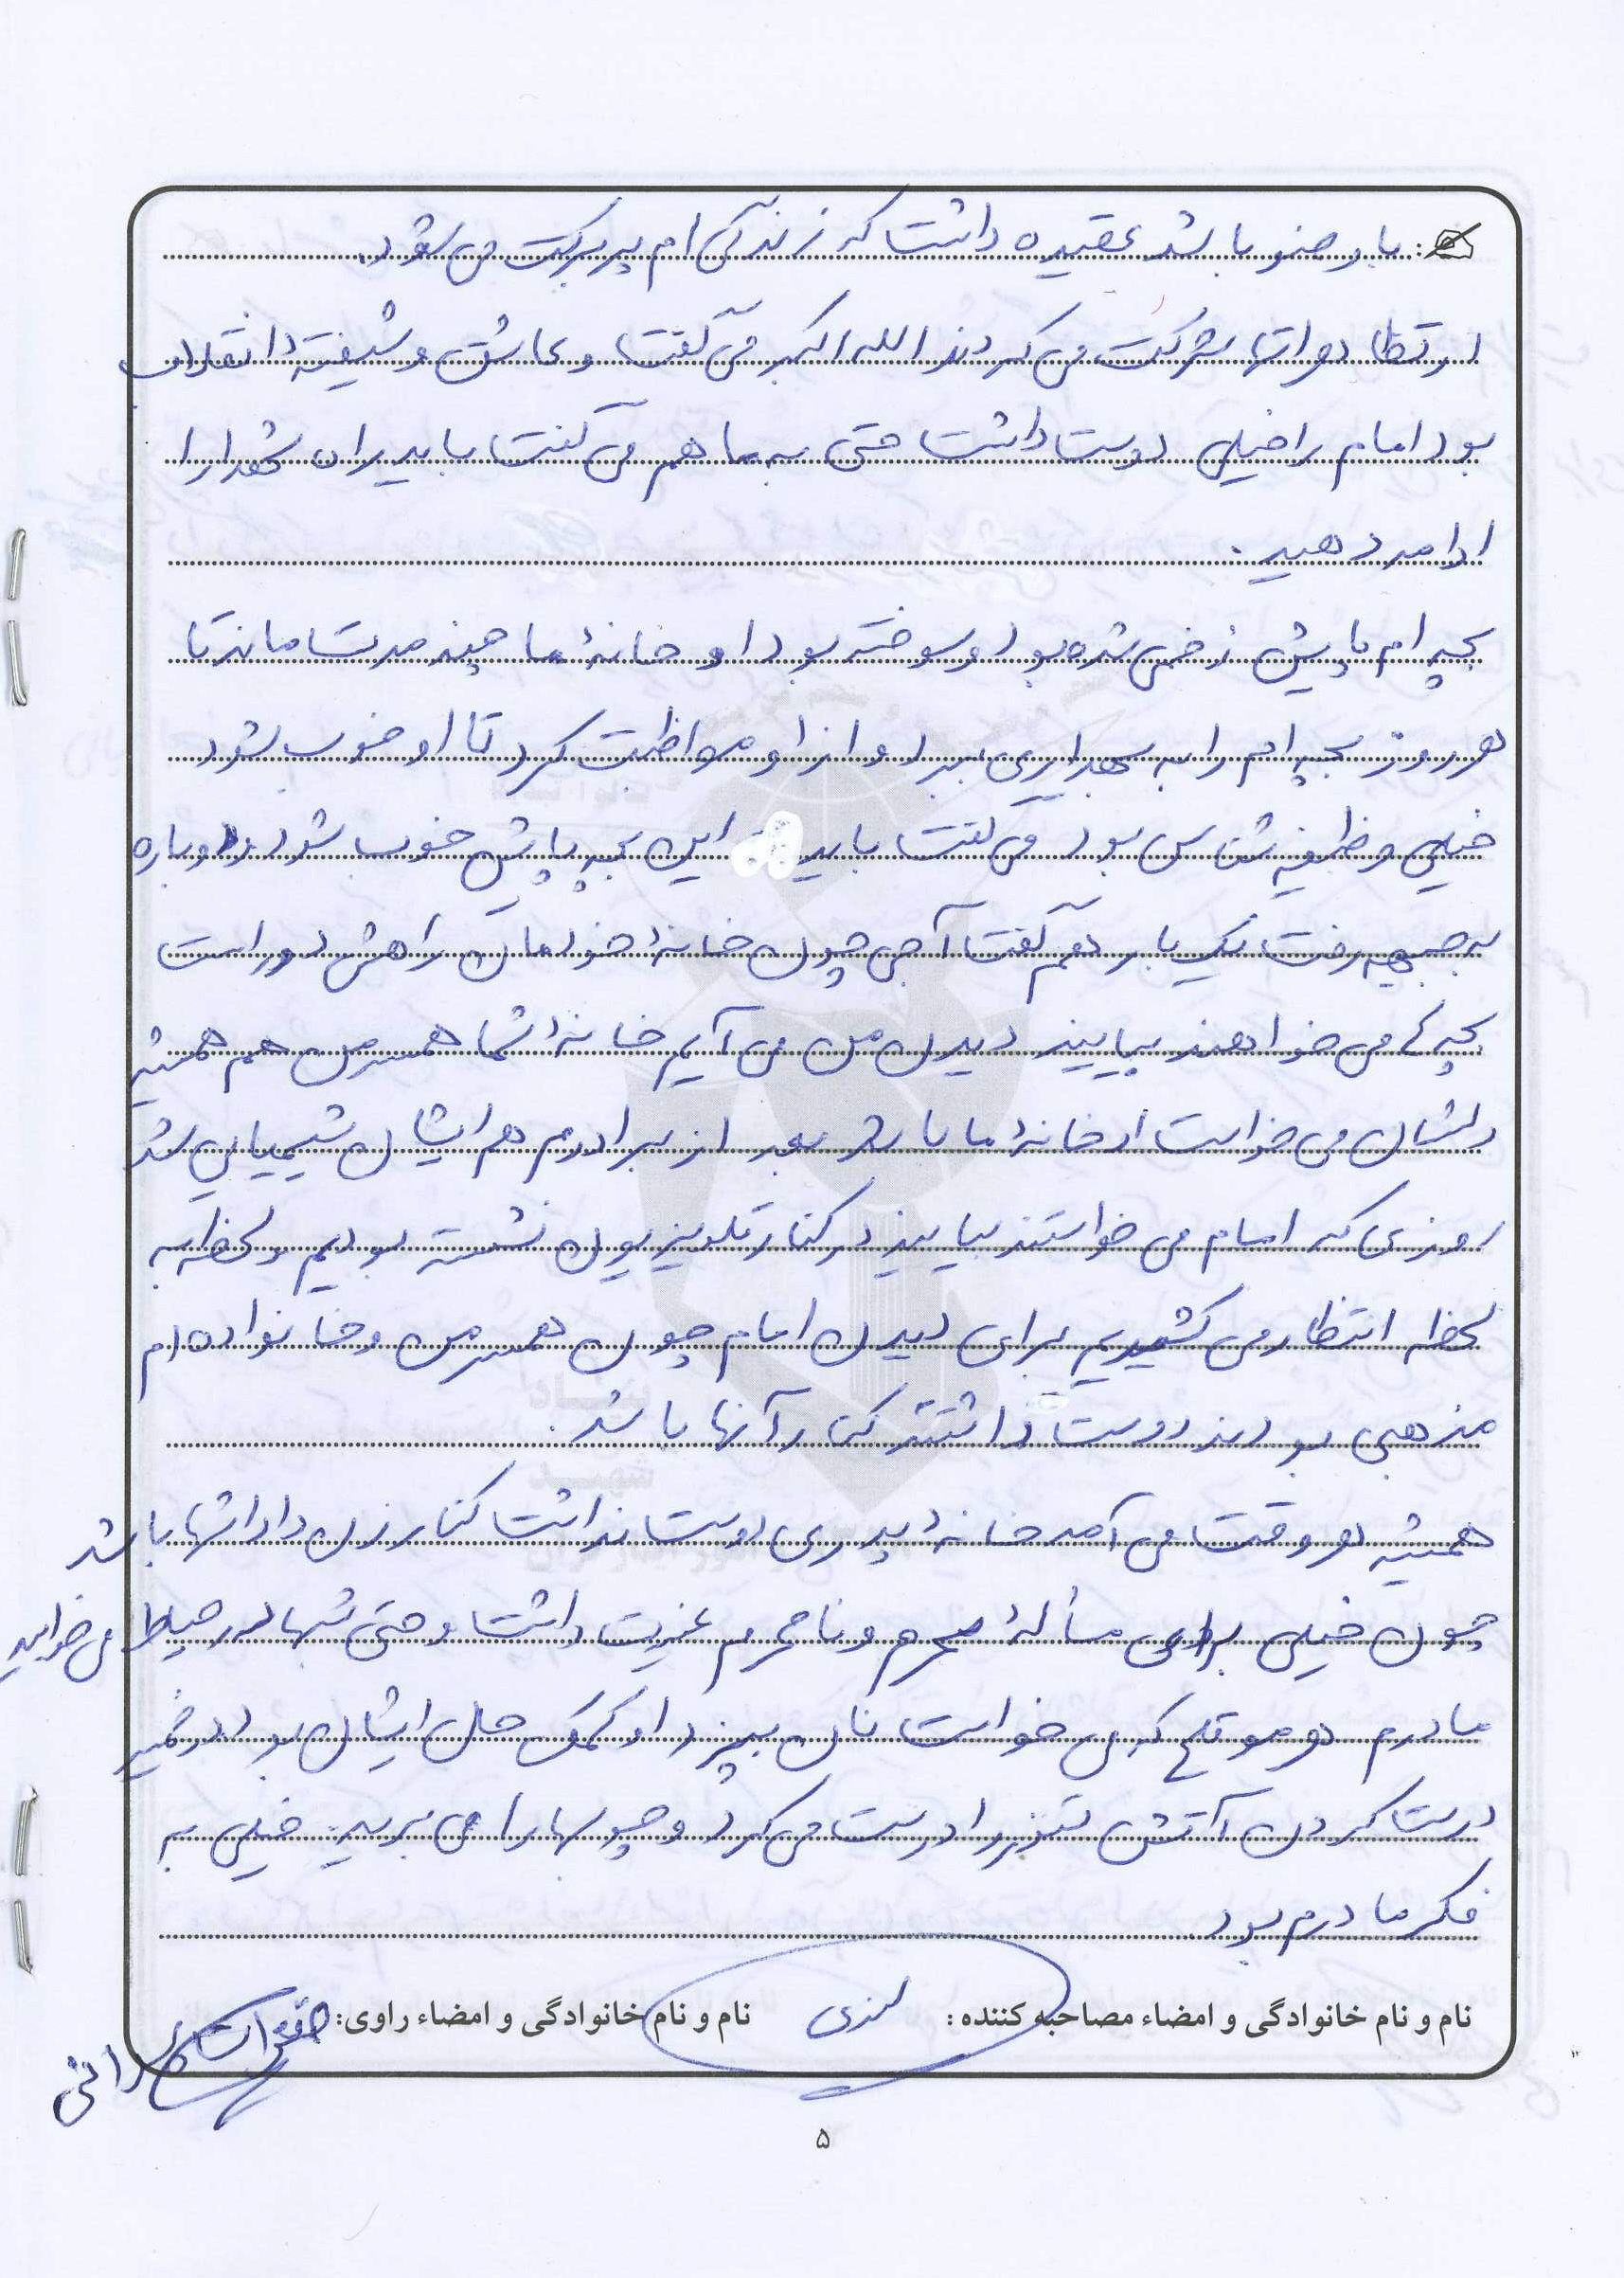 : با وضو باشد عقیده داشت که زندگی ام پر برکت می شود.
در تظاهراتها شرکت می کردند الله اکبر می گفت و عاشق و شیفته انقلاب
بود امام را خیلی دوست داشت حتی به ما هم می گفت باید راه شهدا را
ادامه دهید.
بچه ام پایش زخمی شده بود و سوخته بود او خانهٔ ما چند مدت ماند تا
هر روز بچه ام را به بهداری ببرد و از او مواظبت کرد تا او خوب شود
خیلی وظیفه شناس بود می گفت باید این بچه پایش خوب شود دوباره
به جبهه رفت یک بار هم گفت آجی چون خانهٔ خودمان راهش دور است
بچه ها می خواهند بیایند دیدن من می آیم خانهٔ شما همسر من هم همیشه
دلشان می خواست او خانهٔ ما باشد بعد از برادرم هم ایشان شیمیایی شد
روزی که امام می خواستند بیایند در کنار تلویزیون نشسته بودیم و لحظه به
لحظه انتظار می کشیدیم برای دیدن امام چون همسر من و خانواده ام
مذهبی بودند دوست داشتند کنار آنها باشد.
همیشه هر وقت می آمد خانهٔ پدری دوست نداشت کنار زن داداشها باشد
چون خیلی برای مسألهٔ محرم و نامحرم عزیت داشت و حتی شبها در حیاط می خوابید
مادرم هر موقع که می خواست نان بپزد او کمک حال ایشان بود در خمیر
درست کردن آتش تنور را درست می کرد و چوبها را می برید خیلی به
فکر مادرم بود
نام و نام خانوادگی و امضاء مصاحبه کننده: نام و نام خانوادگی و امضاء راوی:
۵